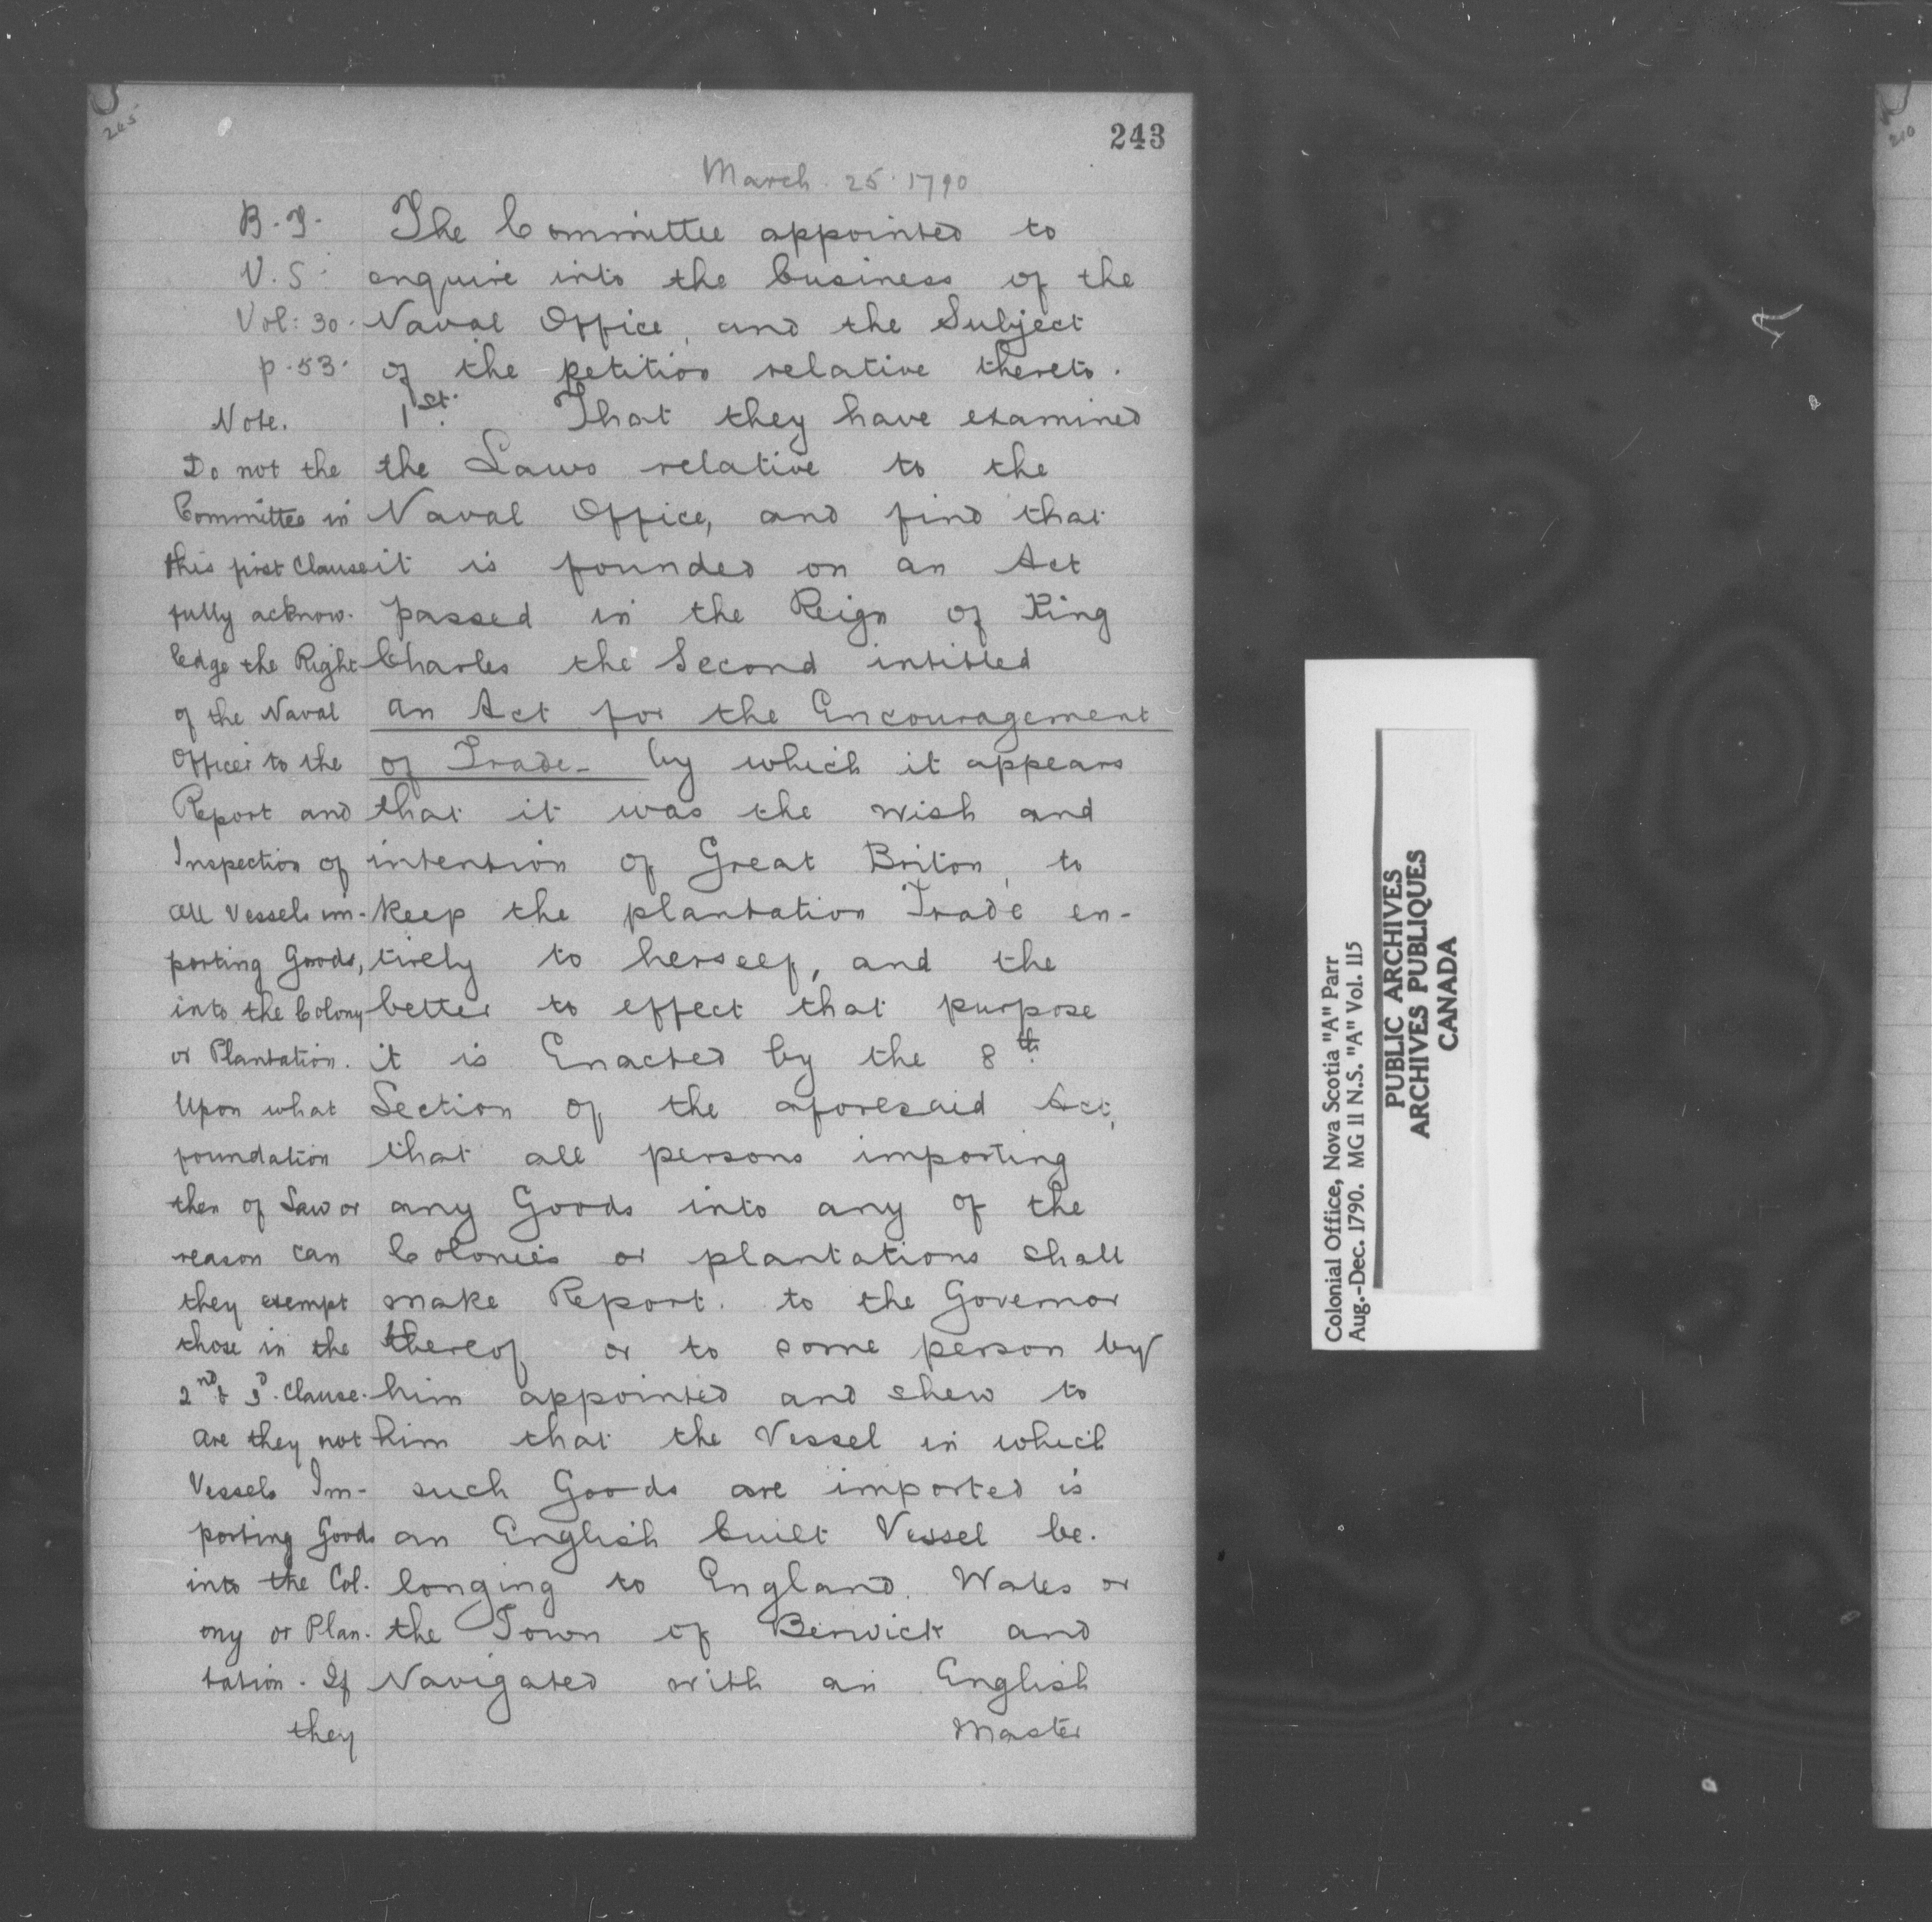 243
March. 25. 1790
B.T.
V.S.
Vol: 30.
p. 53.
Note.
Do not the
Committee in
this first Clause
fully acknow-
ledge the Right
of the Naval
Officer to the
Report and
Inspection of
all Vessels im-
porting Goods,
into the Colony
or Plantation.
Upon what
foundation
then of Law or
reason can
they exempt
those in the
2nd & 3d. Clause.
are they not
Vessels Im-
porting Goods
into the Col.
ony or Plan-
tation. If
they
The Committee appointed to
enquire into the business of the
Naval Office, and the Subject
of the petition relative thereto.
1st. That they have examined
the Laws relative to the
Naval Office, and find that
it is founded on an Act
passed in the Reign of King
Charles the Second intitled
an Act for the Encouragement
of Trade - by which it appears
that it was the wish and
intention of Great Briton, to
keep the plantation Trade en-
tirely to herself, and the
better to effect that purpose
it is Enacted by the 8th.
Section of the aforesaid Act,
that all persons importing
any Goods into any of the
Colonies or plantations shall
make Report. to the Governor
thereof or to some person by
him appointed and shew to
him that the Vessel in which
such Goods are imported is
an English built Vessel be-
longing to England. Wales or
the Town of Berwick and
Navigated with an English
Master
Colonial Office, Nova Scotia "A" Parr
Aug.-Dec. 1790. MG 11 N.S. "A" Vol. 115
PUBLIC ARCHIVES
ARCHIVES PUBLIQUES
CANADA